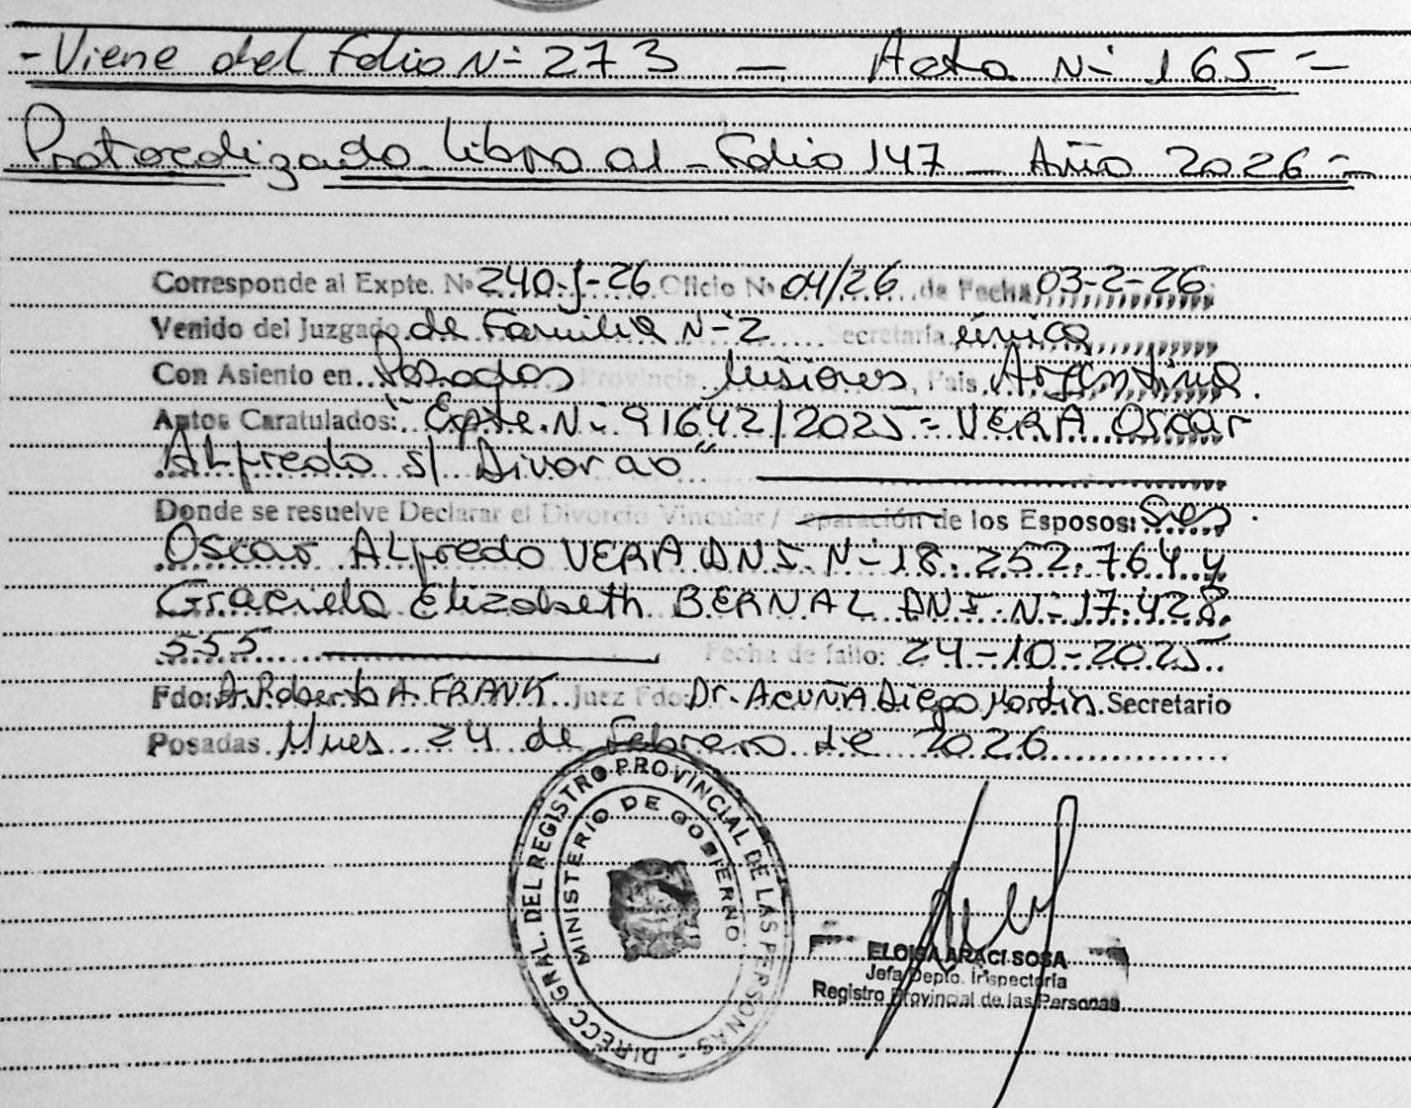 - Viene del folio N- 273 — Acta N- 165 =
Protocolizado libro 01 - Folio 147 - Año 2026 =
Corresponde al Expte. Nº 240-J-26 Oficio Nº 04/26 de Fecha 03-2-26
Venido del Juzgado de Familia N-2 Secretaría única
Con Asiento en Posadas Provincia Misiones, Pais Argentina.
Autos Caratulados: "Expte. N- 91642/2025 = VERA Oscar
ALfredo s/ Divorcio"
Donde se resuelve Declarar el Divorcio Vincular / Separación de los Esposos: Sres.
Oscar ALfredo VERA DNI. N- 18.252.764 y
Graciela Elizabeth BERNAL DNI. N- 17.428.
555 Fecha de fallo: 24-10-2025
Fdo: Roberto A. FRANK Juez Fdo: Dr. ACUÑA Diego Martin Secretario
Posadas, Mnes 24 de Febrero de 2026
DIRECC. GRAL. DEL REGISTRO PROVINCIAL DE LAS PERSONAS -
MINISTERIO DE GOBIERNO
ELOISA ARACI SOSA
Jefa Depto. Inspectoría
Registro Provincial de las Personas